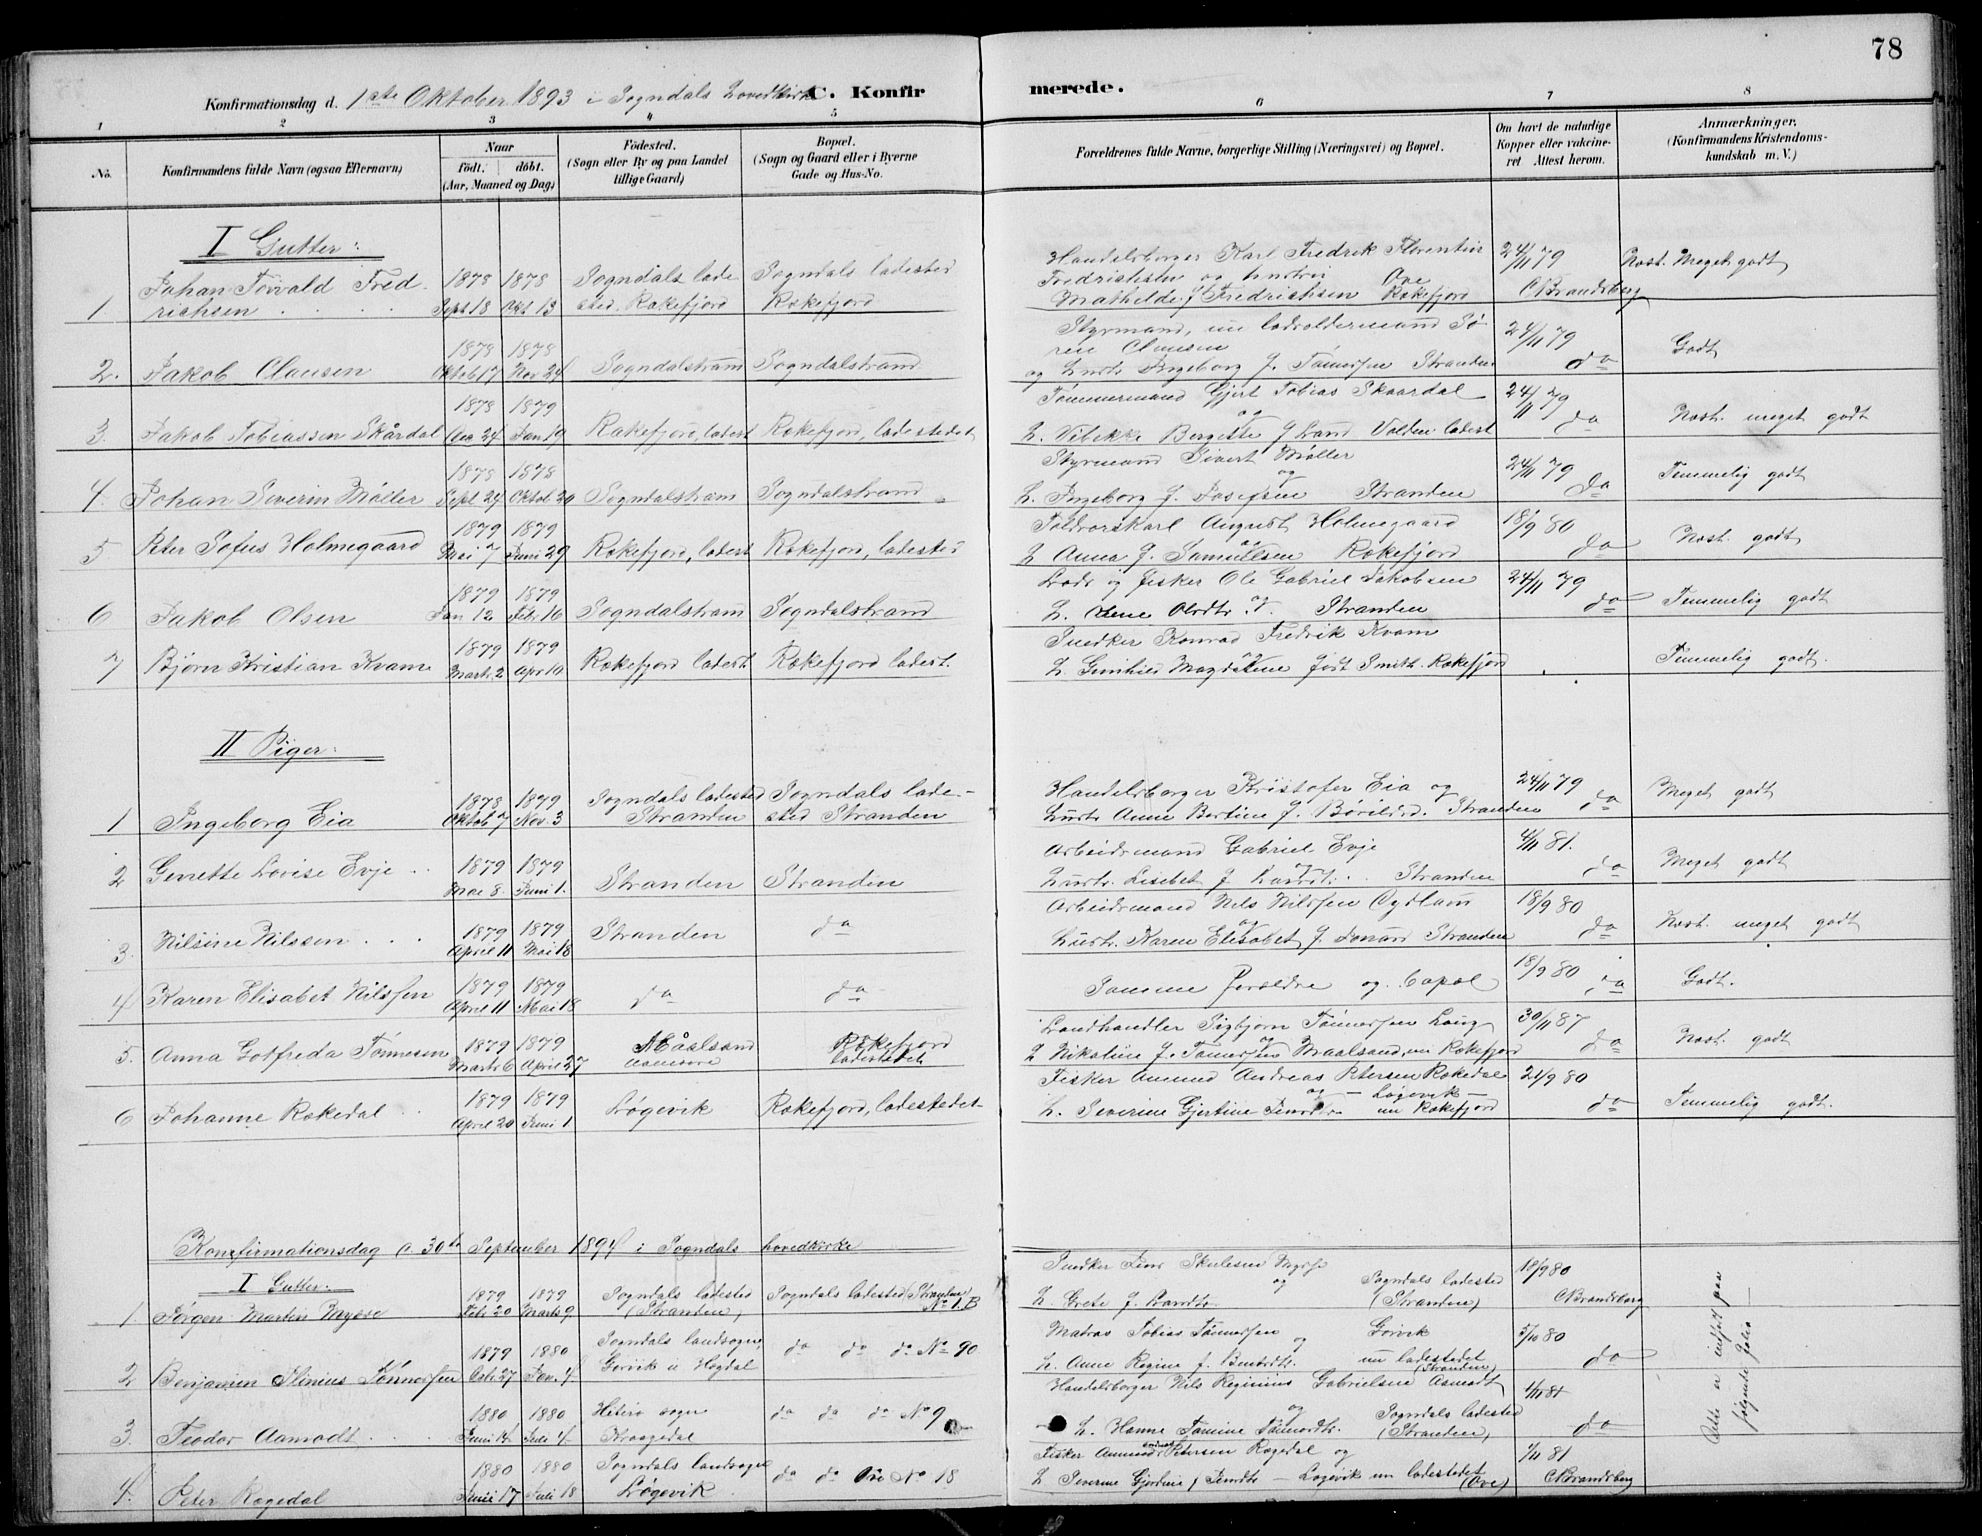 78
Konfirmationsdag d. 1ste Oktober 1893 i Sogndals Hovedkirke C. Konfirmerede.
1 2 3 4 5 6 7 8
No. Konfirmandens fulde Navn (ogsaa Efternavn)
Naar født. døbt. (Aar, Maaned og Dag)
Fødested. (Sogn eller By og paa Landet tillige Gaard)
Bopæl. (Sogn og Gaard eller i Byerne Gade og Hus-No.
Forældrenes fulde Navne, borgerlige Stilling (Næringsvei) og Bopæl.
Om havt de naturlige Kopper eller vakcineret Attest herom.
Anmærkninger. (Konfirmandens Kristendomskundskab m. V.)
I Gutter:
1 Johan Torvald Fredrichsen 1878 Sept 18 1878 Okt 13 Sogndals ladested. Rekefjord Sogndals ladested Rekefjord Handelsborger Karl Fredrik Florentin Fredrichsen og Hustru Mathilde f Fredrichsen Ove Rekefjord 24/11 79 C Brandsberg Næst. Meget godt
2. Jakob Clausen 1878 Oktob 17 1878 Nov 24 Sogndalstrand Sogndalstrand Styrmand, nu ladvoldermand Søren Clausen og Hustr Ingeborg f. Tønnesen Stranden 24/11 79 do Godt
3. Jakob Tobiassen Skårdal 1878 24 1879 Jan 19 Rekefjord, ladest Rekefjord, ladestedet Tømmermand Gjert Tobias Skaardal og H. Vibekke Bergitte f Lund Valden ladest 24/11 79 do Næst. meget godt
4. Johan Severin Møller 1878 Sept 24 1878 Oktob 20 Sogndalstrand Sogndalstrand Styrmand Sivert Møller og H. Ingeborg f. Josefsen Stranden 24/11 79 do Temmelig godt
5 Peter Sofus Holmegaard 1879 Mai 7 1879 Juni 29 Rekefjord, ladest Rekefjord, ladested Toldvorskarl August Holmegaard og H Anna f. Samuelsen Rekefjord 18/9 80 do Næst. godt
6 Jakob Olsen 1879 Jan 12 1879 Febr 16 Sogndalstrand Sogndalstrand Lods og fisker Ole Gabriel Jakobsen og H. Stranden 24/11 79 do Temmelig godt
7 Bjørn Kristian Kvame 1879 Marts 2 1879 Apr 10 Rekefjord ladest Rekefjord ladest. Snedker Konrad Fredrik Kvam og H. Gunhild Magdalene født Smith. Rekefjord Temmelig godt.
II Piger:
1 Ingeborg Eia 1878 Oktob 7 1879 Nov. 3 Sogndals ladested Stranden Sogndals ladested Stranden Handelsborger Kristofer Eia og Hustr Anne Bertine f. Stranden 24/11 79 do Meget godt
2 Genette Lovise Evje 1879 Mai 8 1879 Juni 1. Stranden Stranden Arbeidsmand Gabriel Evje og Hustr. Lisebet f. Stranden 4/11 81. do Meget godt
3. Nilsine Nilssen 1879 April 11 1879 Mai 18 Stranden do Arbeidsmand Nils Nilssen og Hustr. Karen Elisabet f Stranden 18/9 80 do Næst. meget godt
4 Karen Elisabet Nilssen 1879 April 11 1879 Mai 18 do do Samme forældre og bopæl 18/9 80 da Godt.
5. Anna Gotfreda Tønnesen 1879 Marts 6 1879 April 27 Maalsand Rekefjord ladestedet Landhandler Sigbjørn Tønnessen og H Nikoline f. Tønnesen Maalsand, nu Rekefjord 30/11 87 do Næst. godt
6 Johanne Rekedal 1879 April 20 1879 Juni 1 Løgevik Rekefjord, ladestedet Fisker Amund Andreas Petersen Rekedal og — Løgevik — H. Severine Gjertine nu Rekefjord 21/9 80 do Temmelig godt.
Konfirmationsdag d. 30te September 1894 i Sogndals hovedkirke
I Gutter:
1. Jørgen Martin Mysse 1879 Febr. 20 1879 Marts 9 Sogndals ladested (Stranden) Sogndals ladested (Stranden No 1. B Snedker Skulesen og H. Grete f. Sogndals ladested (Stranden) 18/9 80 C Brandsberg
2 Benjamin Tønnessen 1879 Octr. 27 1880 Jan. 4 Sogndals landsogn, Gorvik do do do No 90 Matros Tobias Tønnessen og H. Anne Regine f. Gorvik nu ladestedet (Stranden) 5/10 80 do
3. Teodor Aamodt 1880 Juni 14 1880 Juli 4 Hiterø sogn do do do No 9 Handelsborger Nils Reginius Gabrielsen Aamodt og H. Hanne Tomine Sogndals ladested (Stranden) 4/11 81 do
4. Peter Regedal 1880 Juni 17 1880 Juli 18 Sogndals landsogn Løgevik do do No 18 Fisker Amund Andreas Petersen Regedal og H Severine Gjertine f — Løgevik nu ladestedet (Ove) 1/11 81 C Brandsberg
Dette er indført paa følgende folio